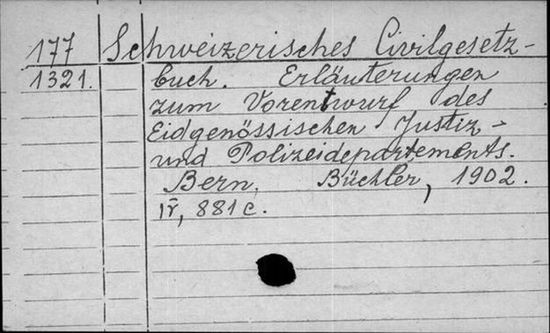 177 Schweizerisches Civilgesetz-
1321. buch. Erläuterungen
zum Vorentwurf des
Eidgenössischen Justiz-
und Polizeidepartements.
Bern, Büchler, 1902.
IV, 881 c.